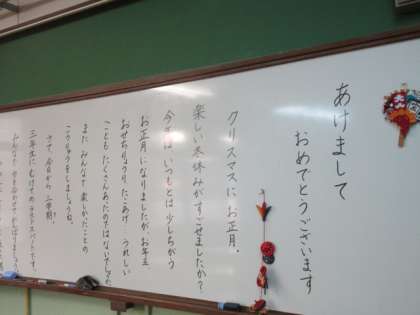 あけまして
おめでとうございます
クリスマスに お正月。
楽しい冬休みがすごせましたか?
今年は いつもとは 少しちがう
お正月になりましたが、お年玉
おせちりょうり、たこあげ うれしい
こともたくさんあったのではないでしょ
また みんなで 楽しかったことの
こうりゅうをしましょうね。
さて、今日から 三学期。
三年生にむけてのラストスパートです。